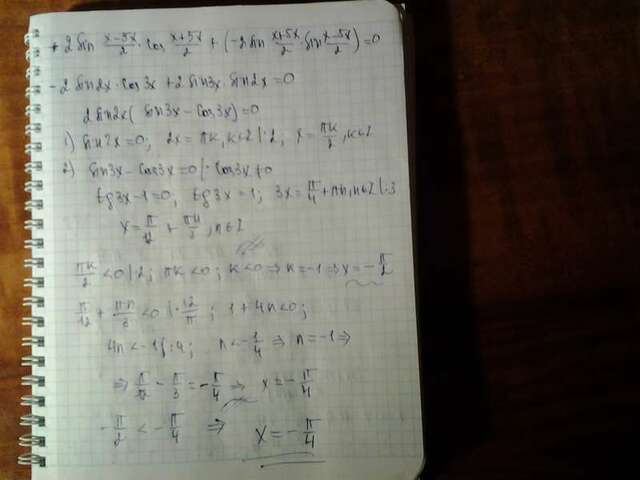 + 2 sin (x-5x)/2 · cos (x+5x)/2 + (-2 sin (x+5x)/2 · sin (x-5x)/2) = 0
- 2 sin 2x · cos 3x + 2 sin 3x · sin 2x = 0
2 sin 2x ( sin 3x - cos 3x) = 0
1) sin 2x = 0; 2x = πk, k∈Z |:2; x = πk/2, k∈Z
2) sin 3x - cos 3x = 0 |: cos 3x ≠ 0
tg 3x - 1 = 0; tg 3x = 1; 3x = π/4 + πn, n∈Z |:3
x = π/12 + πn/3, n∈Z
πk/2 < 0 |·2; πk < 0; k < 0 ⇒ k = -1 ⇒ x = - π/2
π/12 + πn/3 < 0 |· 12/π; 1 + 4n < 0;
4n < -1 |:4; n < - 1/4 ⇒ n = -1 ⇒
⇒ π/12 - π/3 = - π/4 ⇒ x = - π/4
- π/2 < - π/4 ⇒ x = - π/4